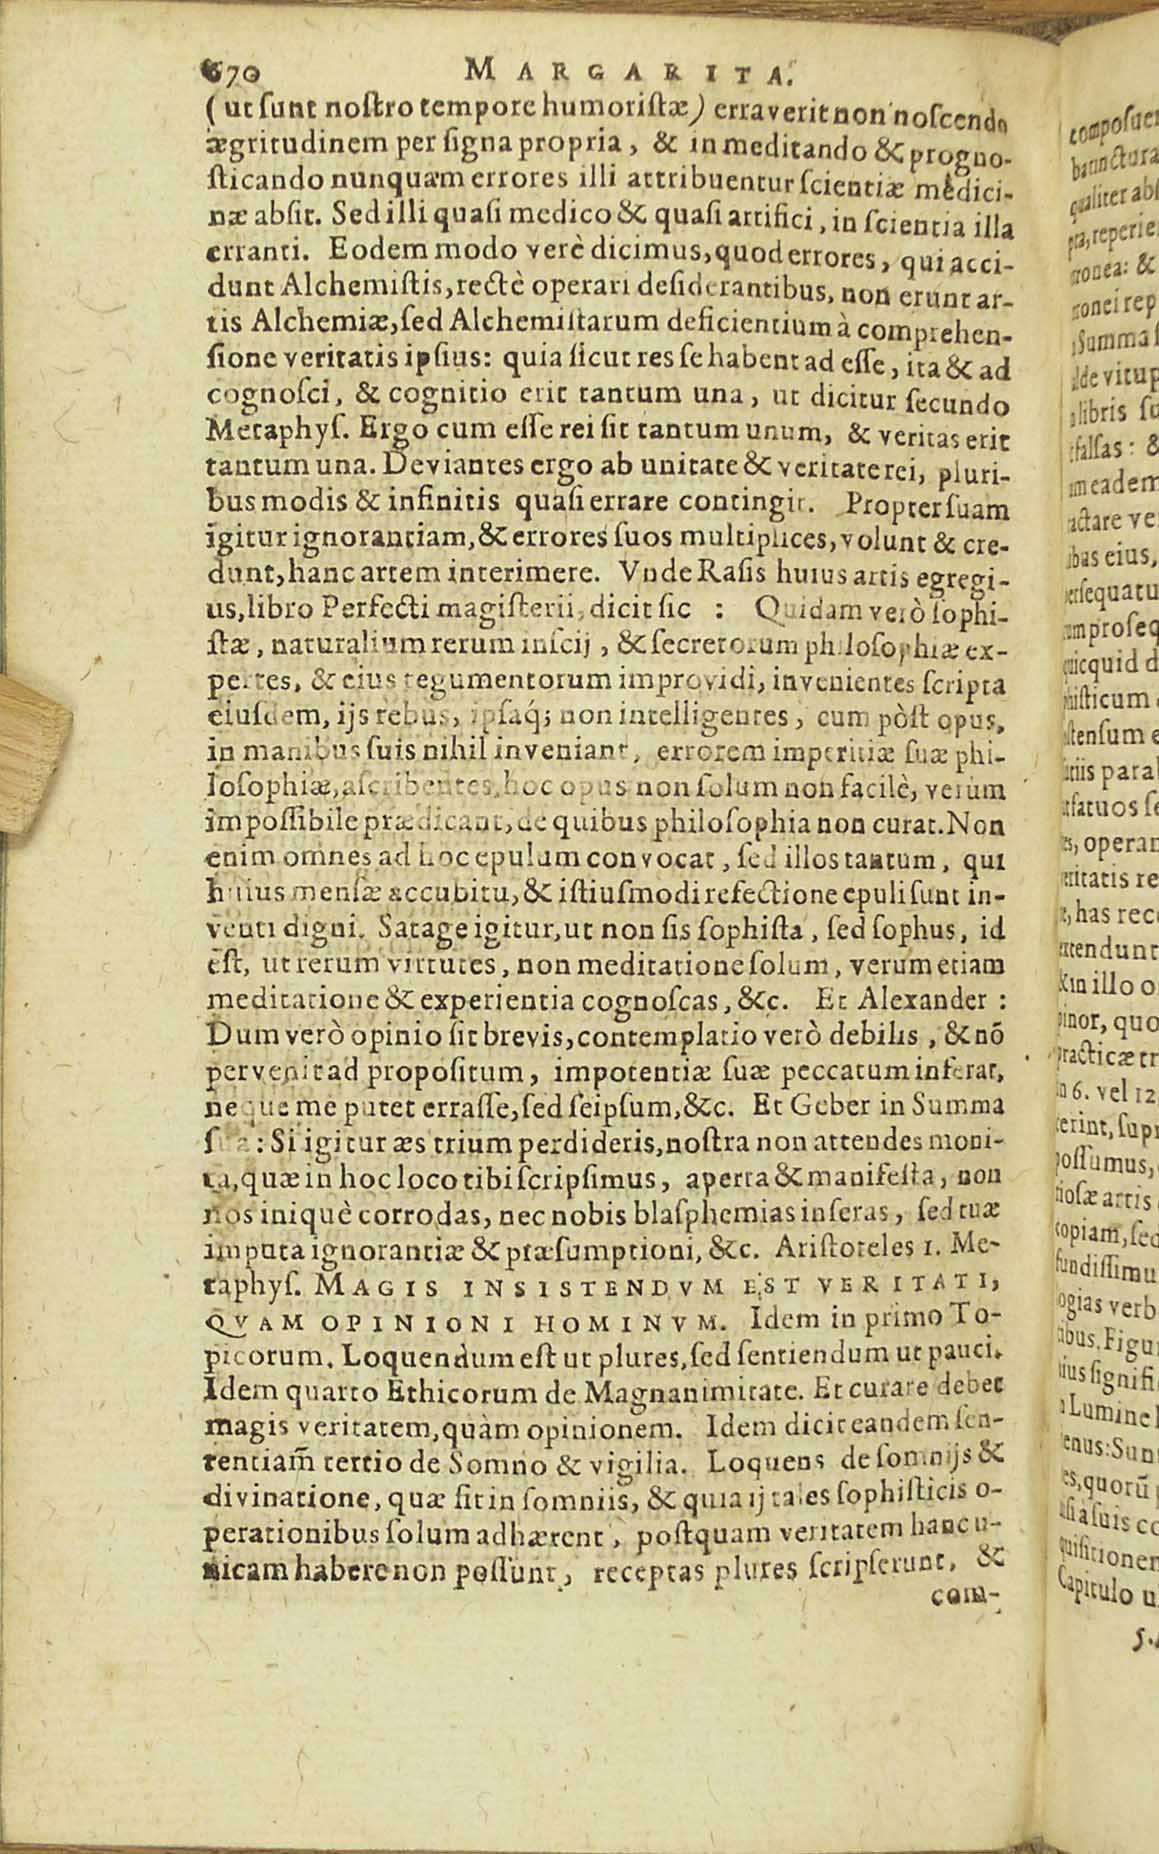 670 MARGARITA.
(ut ſunt noſtro tempore humoriſtæ) erraverit non noſcendo
ægritudinem per ſigna propria, & in meditando & progno-
ſticando nunquam errores illi attribuentur ſcientiæ medici-
næ abſit. Sed illi quaſi medico & quaſi artifici, in ſcientia illa
erranti. Eodem modo verè dicimus, quod errores, qui acci-
dunt Alchemiſtis, rectè operari deſiderantibus, non erunt ar-
tis Alchemiæ, ſed Alchemiſtarum deficientium à comprehen-
ſione veritatis ipſius: quia ſicut res ſe habent ad eſſe, ita & ad
cognoſci, & cognitio erit tantum una, ut dicitur ſecundo
Metaphyſ. Ergo cum eſſe rei ſit tantum unum, & veritas erit
tantum una. Deviantes ergo ab unitate & veritate rei, pluri-
bus modis & infinitis quaſi errare contingit. Propter ſuam
igitur ignorantiam, & errores ſuos multiplices, volunt & cre-
dunt, hanc artem interimere. Vnde Raſis huius artis egregi-
us, libro Perfecti magiſterii, dicit ſic : Quidam verò ſophi-
ſtæ, naturalium rerum inſcij, & ſecretorum philoſophiæ ex-
pertes, & eius tegumentorum improvidi, invenientes ſcripta
eiuſdem, ijs rebus, ipſaq́; non intelligentes, cum pòſt opus,
in manibus ſuis nihil inveniant, errorem imperitiæ ſuæ phi-
loſophiæ, aſcribentes, hoc opus non ſolum non facilè, verùm
impoſſibile prædicant, de quibus philoſophia non curat. Non
enim omnes ad hoc epulum convocat, ſed illos tantum, qui
huius menſæ accubitu, & iſtiuſmodi refectione epuli ſunt in-
venti digni. Satage igitur, ut non ſis ſophiſta, ſed ſophus, id
eſt, ut rerum virtutes, non meditatione ſolum, verum etiam
meditatione & experientia cognoſcas, &c. Et Alexander :
Dum verò opinio ſit brevis, contemplatio verò debilis, & nõ
pervenit ad propoſitum, impotentiæ ſuæ peccatum inferat,
neque me putet erraſſe, ſed ſeipſum, &c. Et Geber in Summa
ſua: Si igitur æs trium perdideris, noſtra non attendes moni-
ta, quæ in hoc loco tibi ſcripſimus, aperta & manifeſta, non
nos iniquè corrodas, nec nobis blaſphemias inſeras, ſed tuæ
imputa ignorantiæ & præſumptioni, &c. Ariſtoteles 1. Me-
taphyſ. MAGIS INSISTENDVM EST VERITATI,
QVAM OPINIONI HOMINVM. Idem in primo To-
picorum. Loquendum eſt ut plures, ſed ſentiendum ut pauci.
Idem quarto Ethicorum de Magnanimitate. Et curare debet
magis veritatem, quàm opinionem. Idem dicit eandem ſen-
tentiam̃ tertio de Somno & vigilia. Loquens de ſomnijs &
divinatione, quæ fit in ſomniis, & quia ij tales ſophiſticis o-
perationibus ſolum adhærent, poſtquam veritatem hanc u-
nicam habere non poſſunt, receptas plures ſcripſerunt, &
com-